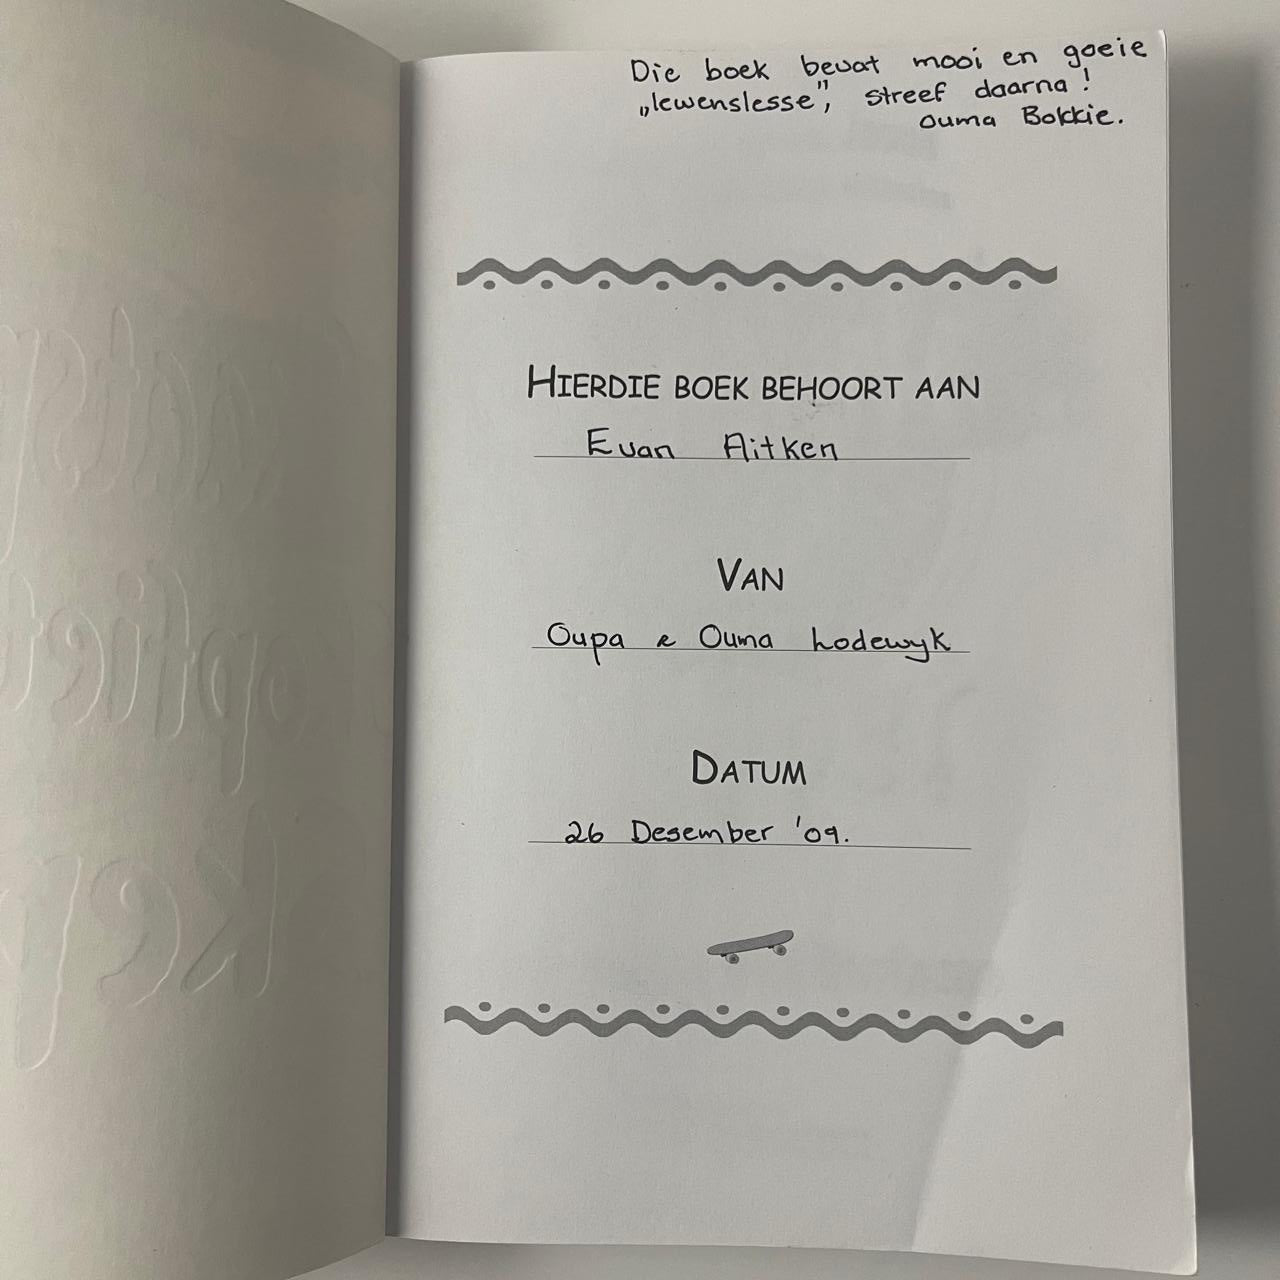 Die boek bevat mooi en goeie
„lewenslesse”, streef daarna!
Ouma Bokkie.
HIERDIE BOEK BEHOORT AAN
Evan Aitken
VAN
Oupa & Ouma Lodewyk
DATUM
26 Desember '09.